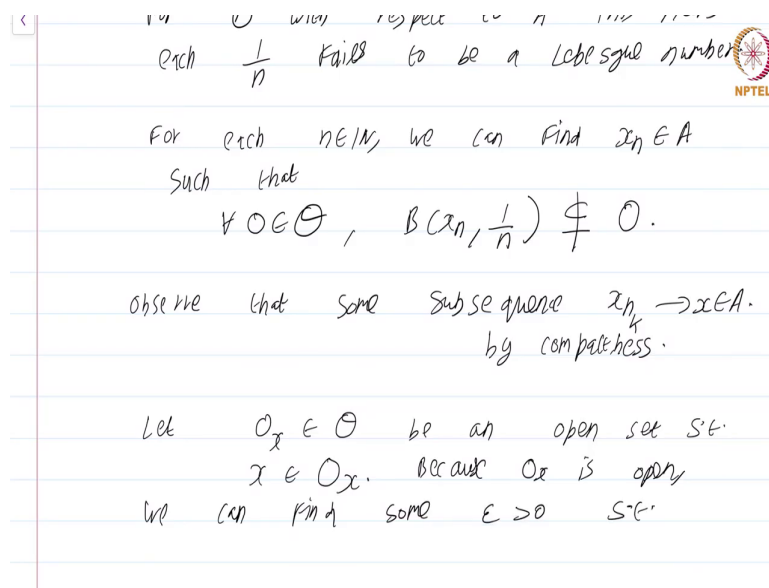 for O with respect to A
each 1/n fails to be a Lebesgue number
NPTEL
For each n∈ℕ, we can find xₙ ∈ A
such that
∀ O∈Θ, B(xₙ, 1/n) ⊄ O.
observe that some subsequence xₙₖ → x∈A.
by compactness.
Let Oₓ ∈ Θ be an open set s.t.
x ∈ Oₓ. Because Oₓ is open,
we can find some ε >0 s.t.